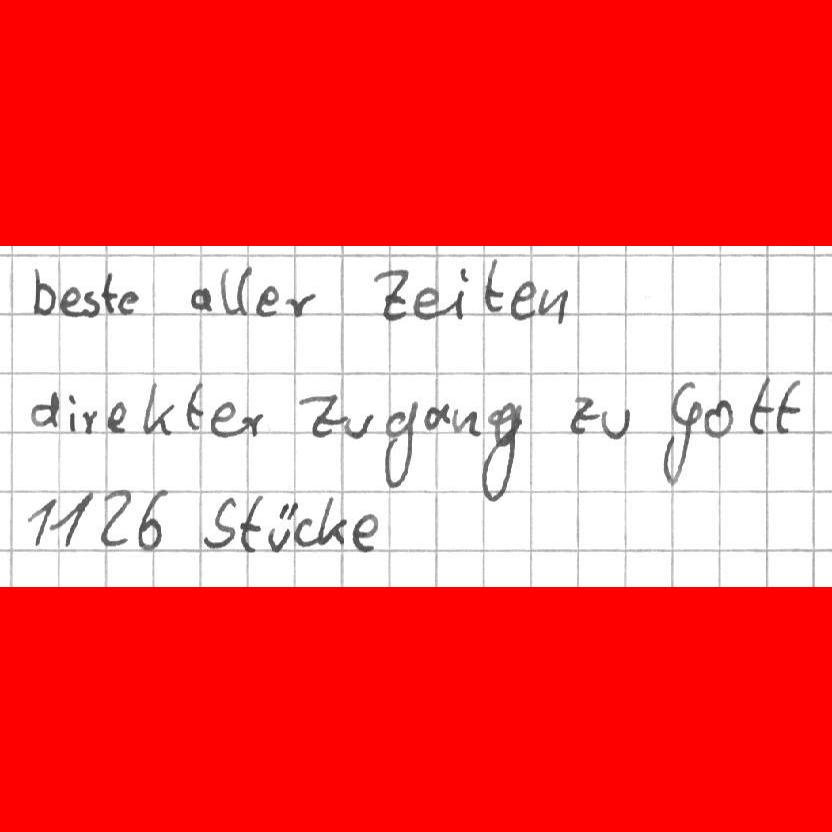 beste aller Zeiten
direkter Zugang zu Gott
1126 Stücke